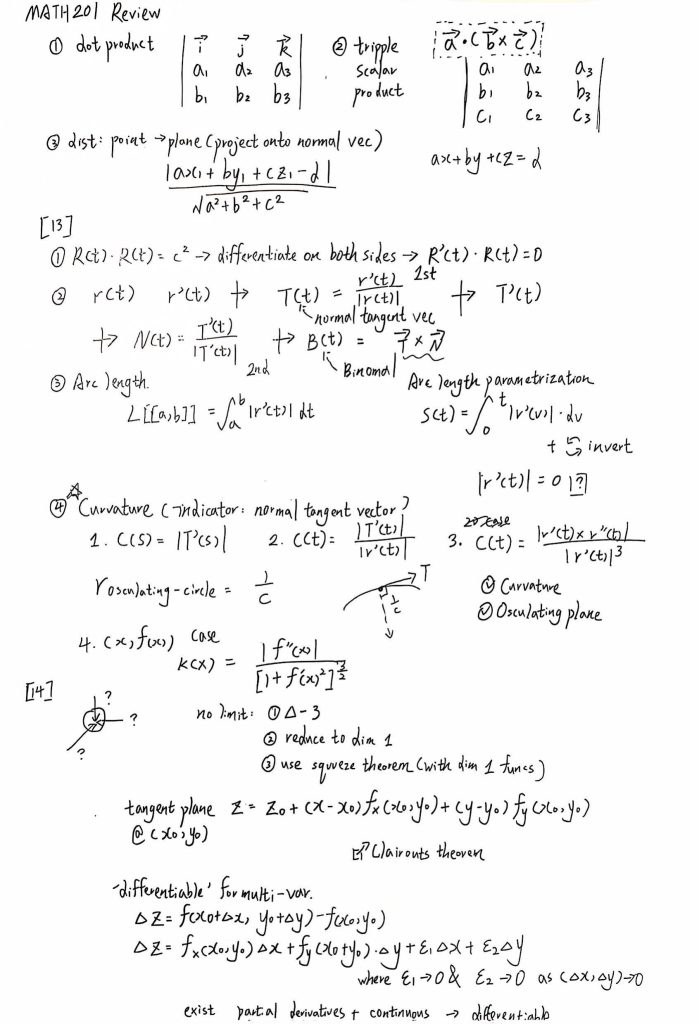 MATH201 Review
① dot product | i⃗ j⃗ k⃗ |
| a₁ a₂ a₃ |
| b₁ b₂ b₃ |
② tripple scalar product a⃗·(b⃗×c⃗)
| a₁ a₂ a₃ |
| b₁ b₂ b₃ |
| c₁ c₂ c₃ |
③ dist: point → plane (project onto normal vec)
|ax₁ + by₁ + cz₁ - d| / √a²+b²+c²
ax+by+cz=d
[13]
① R(t)·R(t) = c² → differentiate on both sides → R'(t)·R(t)=0
② r(t) r'(t) T(t) = r'(t)/|r(t)| 1st T'(t)
normal tangent vec
N(t) = T'(t)/|T'(t)| 2nd B(t) = T⃗ × N⃗
Binomal
③ Arc length.
L[[a,b]] = ∫ₐᵇ |r'(t)| dt
Arc length parametrization
S(t) = ∫₀ᵗ |r'(v)|·dv
t ⇆ s invert
|r'(t)| = 0 ?
☆ ④ Curvature (indicator: normal tangent vector)
1. C(s) = |T'(s)| 2. C(t) = |T'(t)|/|r'(t)| 3. C(t) = |r'(t)×r''(t)|/|r'(t)|³
r osculating-circle = 1/c
T
1/c
✓ Curvature
✓ Osculating plane
4. (x, f(x)) case
K(x) = |f''(x)| / [1+f'(x)²]^(3/2)
[14]
? ? ?
no limit: ① Δ-3
② reduce to dim 1
③ use squveze theorem (with dim 1 funcs)
tangent plane z = z₀ + (x-x₀) fₓ(x₀,y₀) + (y-y₀) f_y(x₀,y₀)
@ (x₀,y₀)
Clairouts theorem
'differentiable' for multi-var.
Δz = f(x₀+Δx, y₀+Δy) - f(x₀,y₀)
Δz = fₓ(x₀,y₀)Δx + f_y(x₀+y₀)·Δy + ε₁Δx + ε₂Δy
where ε₁→0 & ε₂→0 as (Δx,Δy)→0
exist partial derivatives + continuous → differentiable